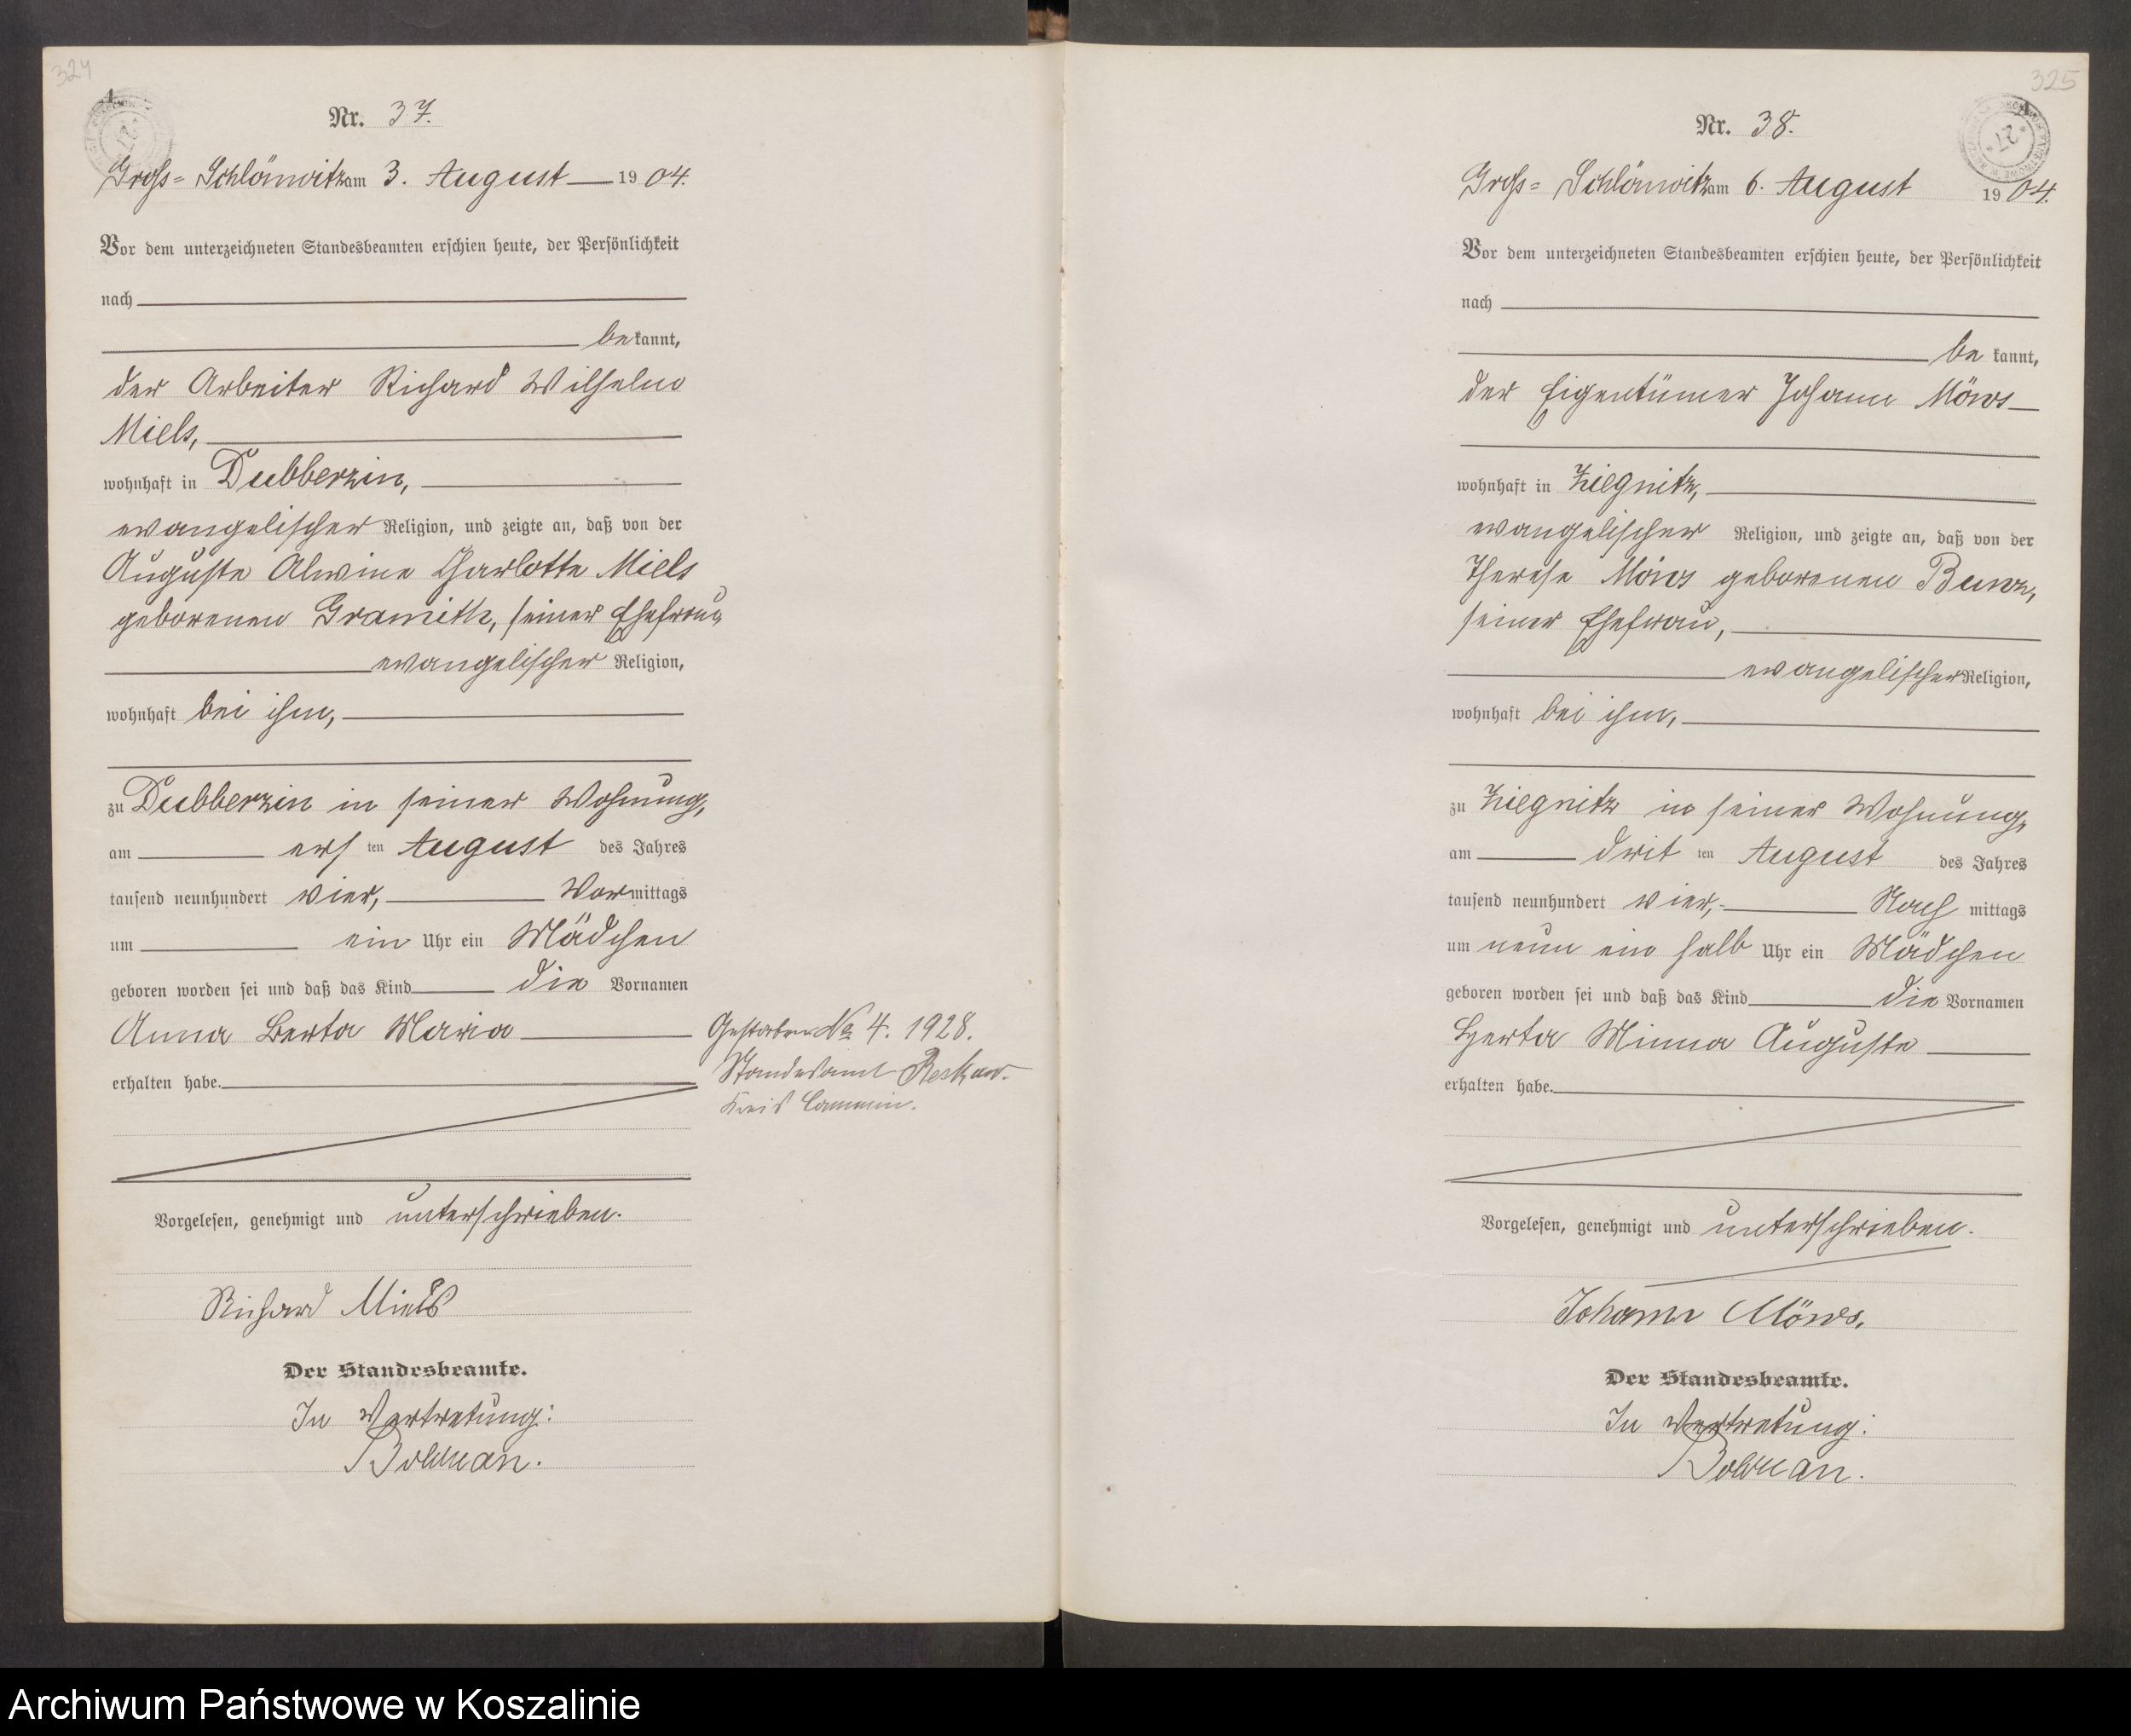 324
Nr. 37.
Groß-Schlönwitz am 3. August 19 04.
Vor dem unterzeichneten Standesbeamten erschien heute, der Persönlichkeit
nach
be kannt,
der Arbeiter Richard Wilhelm
Miels,
wohnhaft in Dubberzin,
evangelischer Religion, und zeigte an, daß von der
Auguste Alwine Charlotte Miels
geborenen Gramith, seiner Ehefrau,
evangelischer Religion,
wohnhaft bei ihm,
zu Dubberzin in seiner Wohnung,
am ers ten August des Jahres
tausend neunhundert vier, Vor mittags
um ein Uhr ein Mädchen
geboren worden sei und daß das Kind die Vornamen
Anna Berta Maria
erhalten habe.
Gestorben No 4. 1928.
Standesamt
Kreis Cammin.
Vorgelesen, genehmigt und unterschrieben.
Richard Miels
Der Standesbeamte.
In Vertretung:
325
Nr. 38.
Groß-Schlönwitz am 6. August 19 04.
Vor dem unterzeichneten Standesbeamten erschien heute, der Persönlichkeit
nach
be kannt,
der Eigentümer Johann Möws
wohnhaft in Ziegnitz,
evangelischer Religion, und zeigte an, daß von der
Therese Möws geborenen
seiner Ehefrau,
evangelischer Religion,
wohnhaft bei ihm,
zu Ziegnitz in seiner Wohnung,
am drit ten August des Jahres
tausend neunhundert vier, Nach mittags
um neun ein halb Uhr ein Mädchen
geboren worden sei und daß das Kind die Vornamen
Herta Minna Auguste
erhalten habe.
Vorgelesen, genehmigt und unterschrieben.
Johann Möws.
Der Standesbeamte.
In Vertretung:
Archiwum Państwowe w Koszalinie